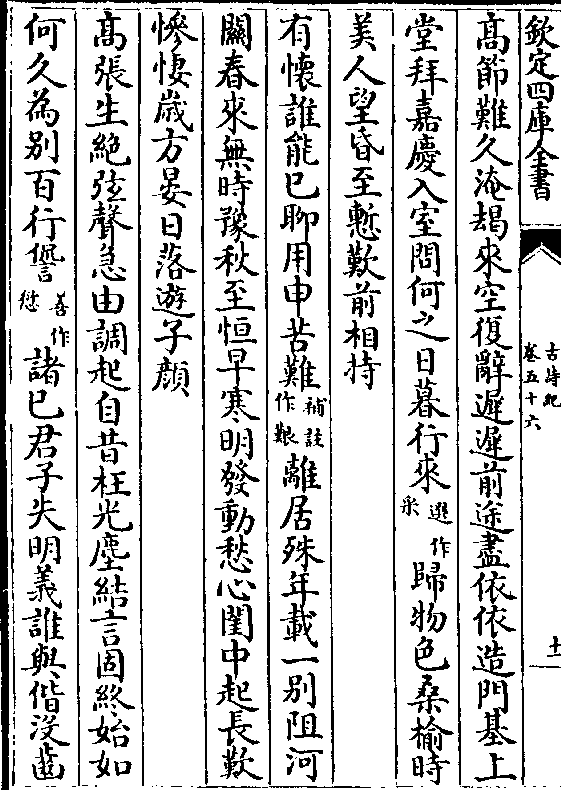 欽定四庫全書
古詩紀
卷五十六
十一
高節難久淹朅來空復辭遲遲前途盡依依造門基上
堂拜嘉慶入室問何之日暮行來選作采歸物色桑榆時
美人望昏至慙歎前相持
有懷誰能已聊用申苦難補註作艱離居殊年載一別阻河
關春來無時豫秋至恒早寒明發動愁心閨中起長歎
慘悽歲方晏日落遊子顏
高張生絶弦聲急由調起自昔枉光塵結言固終始如
何久為別百行諐善作愆諸已君子失明義誰與偕沒齒